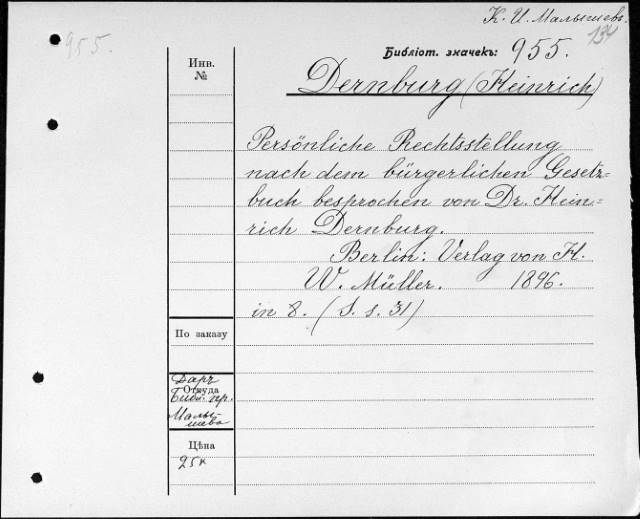 К. И. Малышевъ.
134
955.
Библіот. значекъ: 955.
Инв.
№
Dernburg (Heinrich)
Persönliche Rechtsstellung
nach dem bürgerlichen Gesetz=
buch besprochen von Dr. Hein=
rich Dernburg.
Berlin: Verlag von H.
W. Müller. 1896.
in 8. (S. s. 31)
По заказу
Даръ
Откуда
Библ. пр.
Малы-
шева
Цѣна
25 к